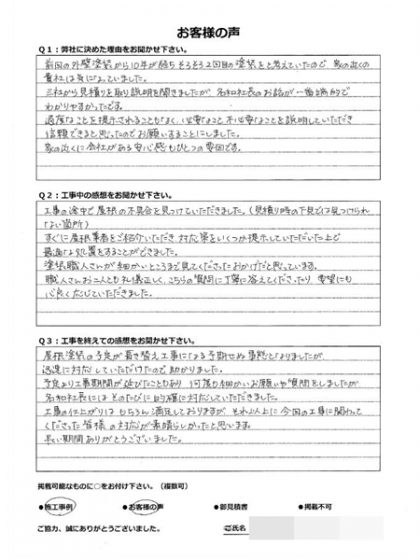 お客様の声
Q1：弊社に決めた理由をお聞かせ下さい。
前回の外壁塗装から10年が経ちそろそろ2回目の塗装をと考えていたので 家の近くの
貴社は気になっていました。
三社から見積りを取り説明を聞きましたが 名知社長のお話が一番端的で
わかりやすかったです。
過度なことを提示されることもなく、必要なこと不必要なことを説明していただき
信頼できると思ったのでお願いすることにしました。
家の近くに会社がある安心感もひとつの要因です。
Q2：工事中の感想をお聞かせ下さい。
工事の途中で屋根の不具合を見つけていただきました。(見積り時の下見では見つけられ
ない箇所)
すぐに屋根業者をご紹介いただき 対応策をいくつか提示していただいた上で
最適な処置をすることができました。
塗装職人さんが細かいところまで見てくださったおかげだと思っています。
職人さんお二人とも礼儀正しく、こちらの質問に丁寧に答えてくださったり 要望にも
心良く応じていただきました。
Q3：工事を終えての感想をお聞かせ下さい。
屋根塗装の予定が葺き替え工事になる予期せぬ事態となりましたが
迅速に対応していただけたので助かりました。
予定より工事期間が延びたこともあり 何度も細かいお願いや質問をしましたが
名知社長にはそのたびに親切に対応していただきました。
工事の仕上がりはもちろん満足しておりますが それ以上に今回の工事に関わって
くださった皆様の対応が素晴らしかったと思います。
長い期間ありがとうございました。
掲載可能なものに○をお付け下さい。（複数可）
●施工事例 ●お客様の声 ●御見積書 ●掲載不可
ご協力、誠にありがとうございました。 ご氏名